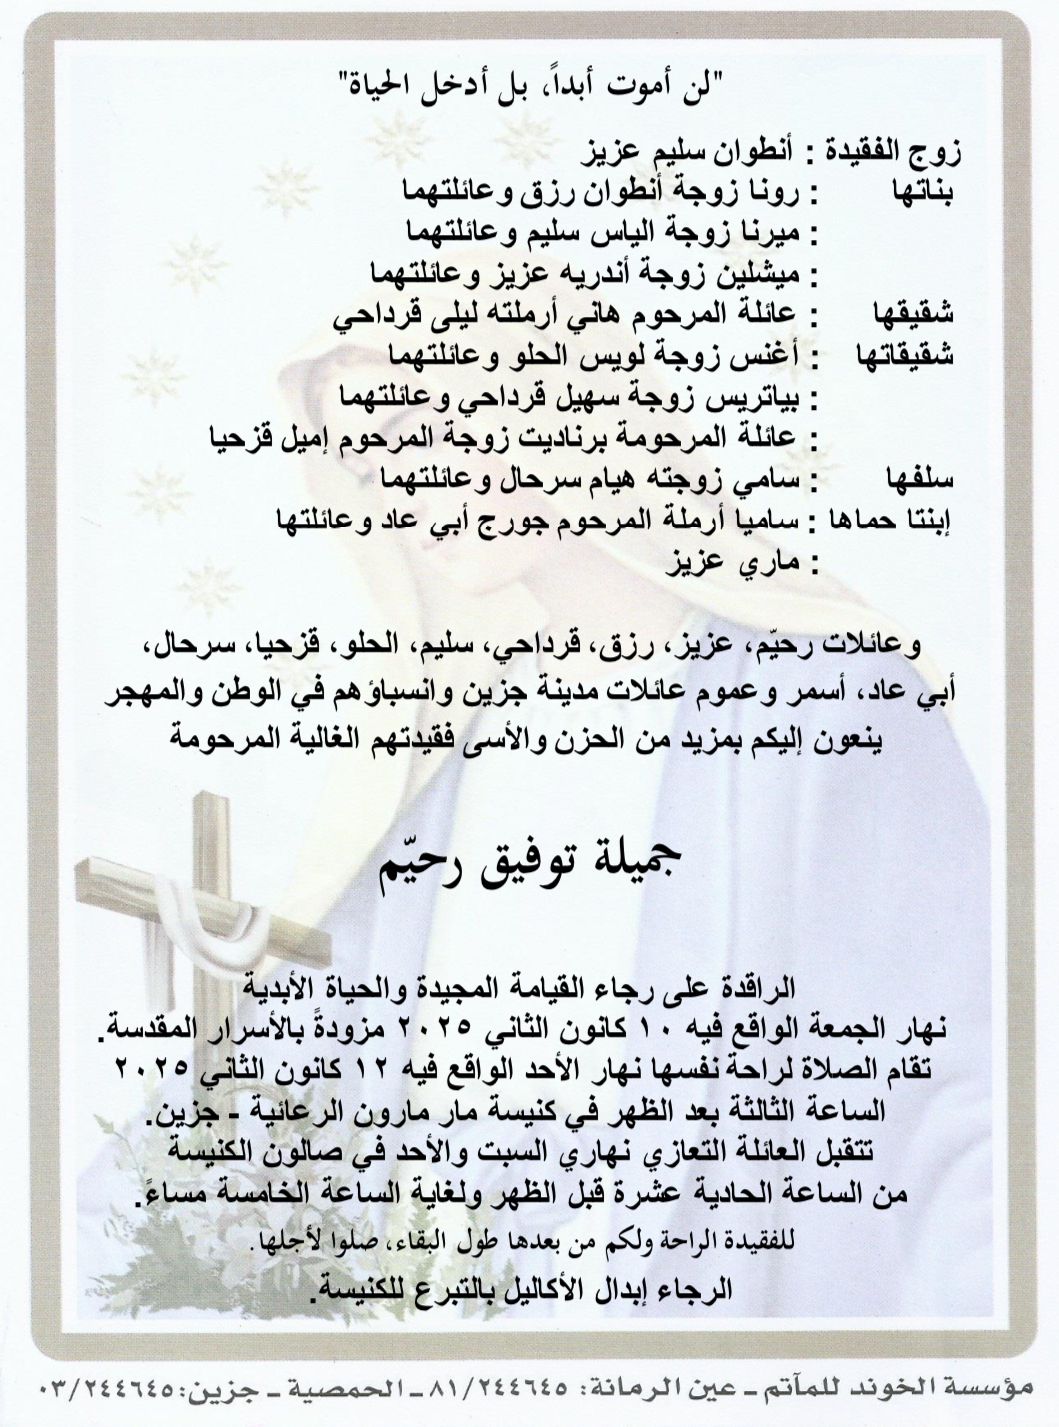 "لن أموت أبداً، بل أدخل الحياة"
زوج الفقيدة : أنطوان سليم عزيز
بناتها : رونا زوجة أنطوان رزق وعائلتهما
: ميرنا زوجة الياس سليم وعائلتهما
: ميشلين زوجة أندريه عزيز وعائلتهما
شقيقها : عائلة المرحوم هاني أرملته ليلى قرداحي
شقيقاتها : أغنس زوجة لويس الحلو وعائلتهما
: بياتريس زوجة سهيل قرداحي وعائلتهما
: عائلة المرحومة برناديت زوجة المرحوم إميل قزحيا
سلفها : سامي زوجته هيام سرحال وعائلتهما
إبنتا حماها : ساميا أرملة المرحوم جورج أبي عاد وعائلتها
: ماري عزيز
وعائلات رحيّم، عزيز، رزق، قرداحي، سليم، الحلو، قزحيا، سرحال،
أبي عاد، أسمر وعموم عائلات مدينة جزين وانسباؤهم في الوطن والمهجر
ينعون إليكم بمزيد من الحزن والأسى فقيدتهم الغالية المرحومة
جميلة توفيق رحيّم
الراقدة على رجاء القيامة المجيدة والحياة الأبدية
نهار الجمعة الواقع فيه ١٠ كانون الثاني ٢٠٢٥ مزودةً بالأسرار المقدسة.
تقام الصلاة لراحة نفسها نهار الأحد الواقع فيه ١٢ كانون الثاني ٢٠٢٥
الساعة الثالثة بعد الظهر في كنيسة مار مارون الرعائية - جزين.
تتقبل العائلة التعازي نهاري السبت والأحد في صالون الكنيسة
من الساعة الحادية عشرة قبل الظهر ولغاية الساعة الخامسة مساءً.
للفقيدة الراحة ولكم من بعدها طول البقاء، صلوا لأجلها.
الرجاء إبدال الأكاليل بالتبرع للكنيسة.
مؤسسة الخوند للمآتم ـ عين الرمانة: ٨١/٢٤٤٦٤٥ ـ الحمصية ـ جزين: ٠٣/٢٤٤٦٤٥